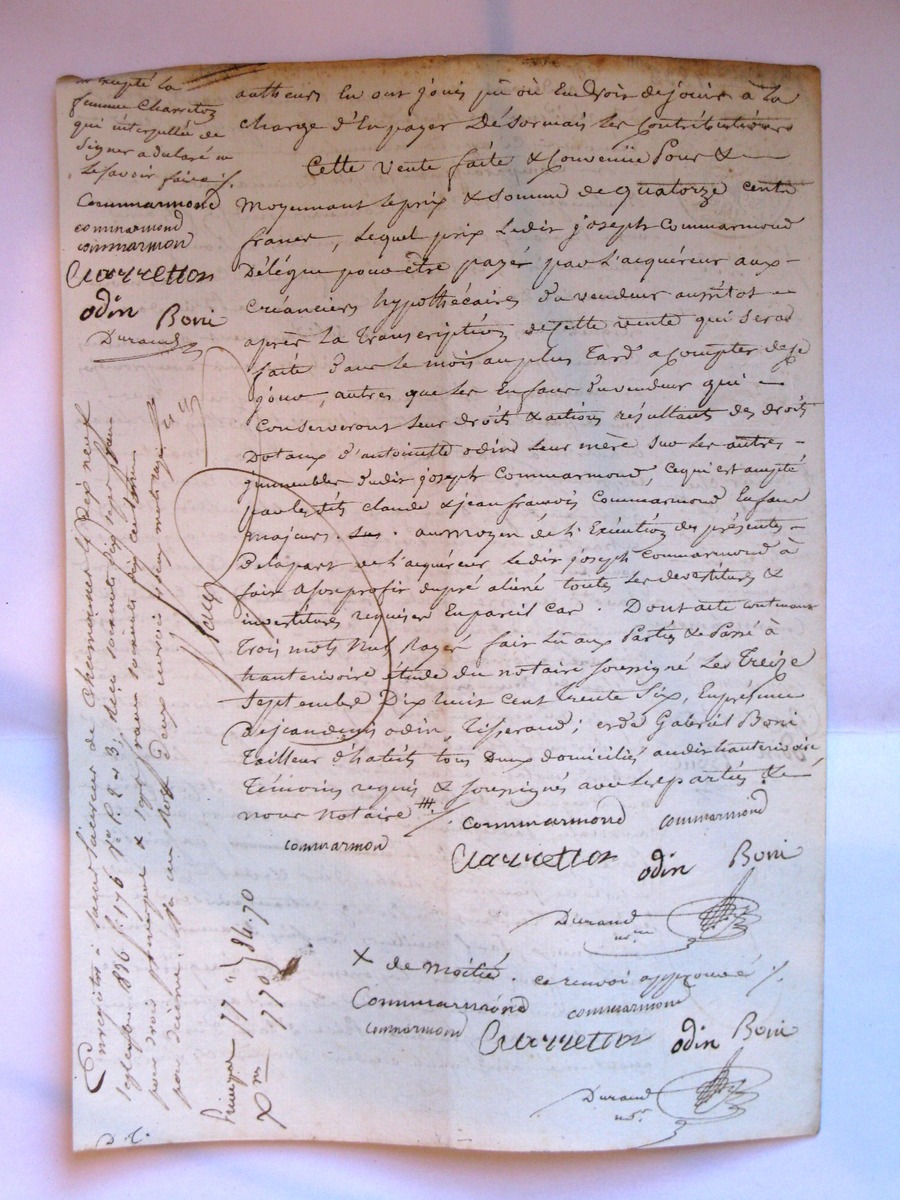 autheurs en ont joui pû où en droit de jouir à la
charge d'en payer désormais les contributions
Cette vente faite & convenüe pour &
moyennant le prix & somme de quatorze cents
francs, lequel prix ledit joseph Commarmond
délégue pour être payé par l'acquéreur aux
créanciers hypothécaires du vendeur aussitot
après la transcription de cette vente qui sera
faite dans le mois au plus tard a compter de ce
jour, autres que les enfans du vendeur qui
conserveront leur droits & actions résultants des droits
dotaux d'antoinette odin leur mère sur les autres
immeubles dudit joseph Commarmond, ce qui est accepté
par lesdits claude & jean françois Commarmond enfans
majeurs. au moyen de l'exécution des présentes
de la part de l'acquéreur ledit joseph Commarmond à
fait à son profit du pré aliéné toutes les devestitures &
investitures requises en pareil cas. Dont acte contenant
trois mots nuls rayés fait lû aux parties & passé à
hauterivoire étude du notaire soussigné le treize
septembre dix huit cent trente six, en présence
de jean odin, tisserand; et de Gabriel Boni
tailleur d'habits tous deux domiciliés audit hauterivoire
témoins requis & soussignés avec les parties &
nous notaire ###
commarmond commarmond
commarmon
Charretton odin Boni
Durand
n.re
X de moitié. ce renvoi approuvé
Commarmond commarmond
commarmond Charretton odin Boni
Durand
n.re
excepté la
femme Charreton
qui interpellée de
signer a déclaré ne
le savoir faire
Commarmond
commarmond
commarmon
Charretton
odin Boni
Durand
Enregistré à Saint Laurent de Chamousset le dix neuf
septembre 1836 f. 176 V.o c. 2 & 3, reçu soixante dix sept francs
pour droit principal & sept francs soixante dix centimes
pour décime.
Principal 77 "
X.me 7 70
84.70